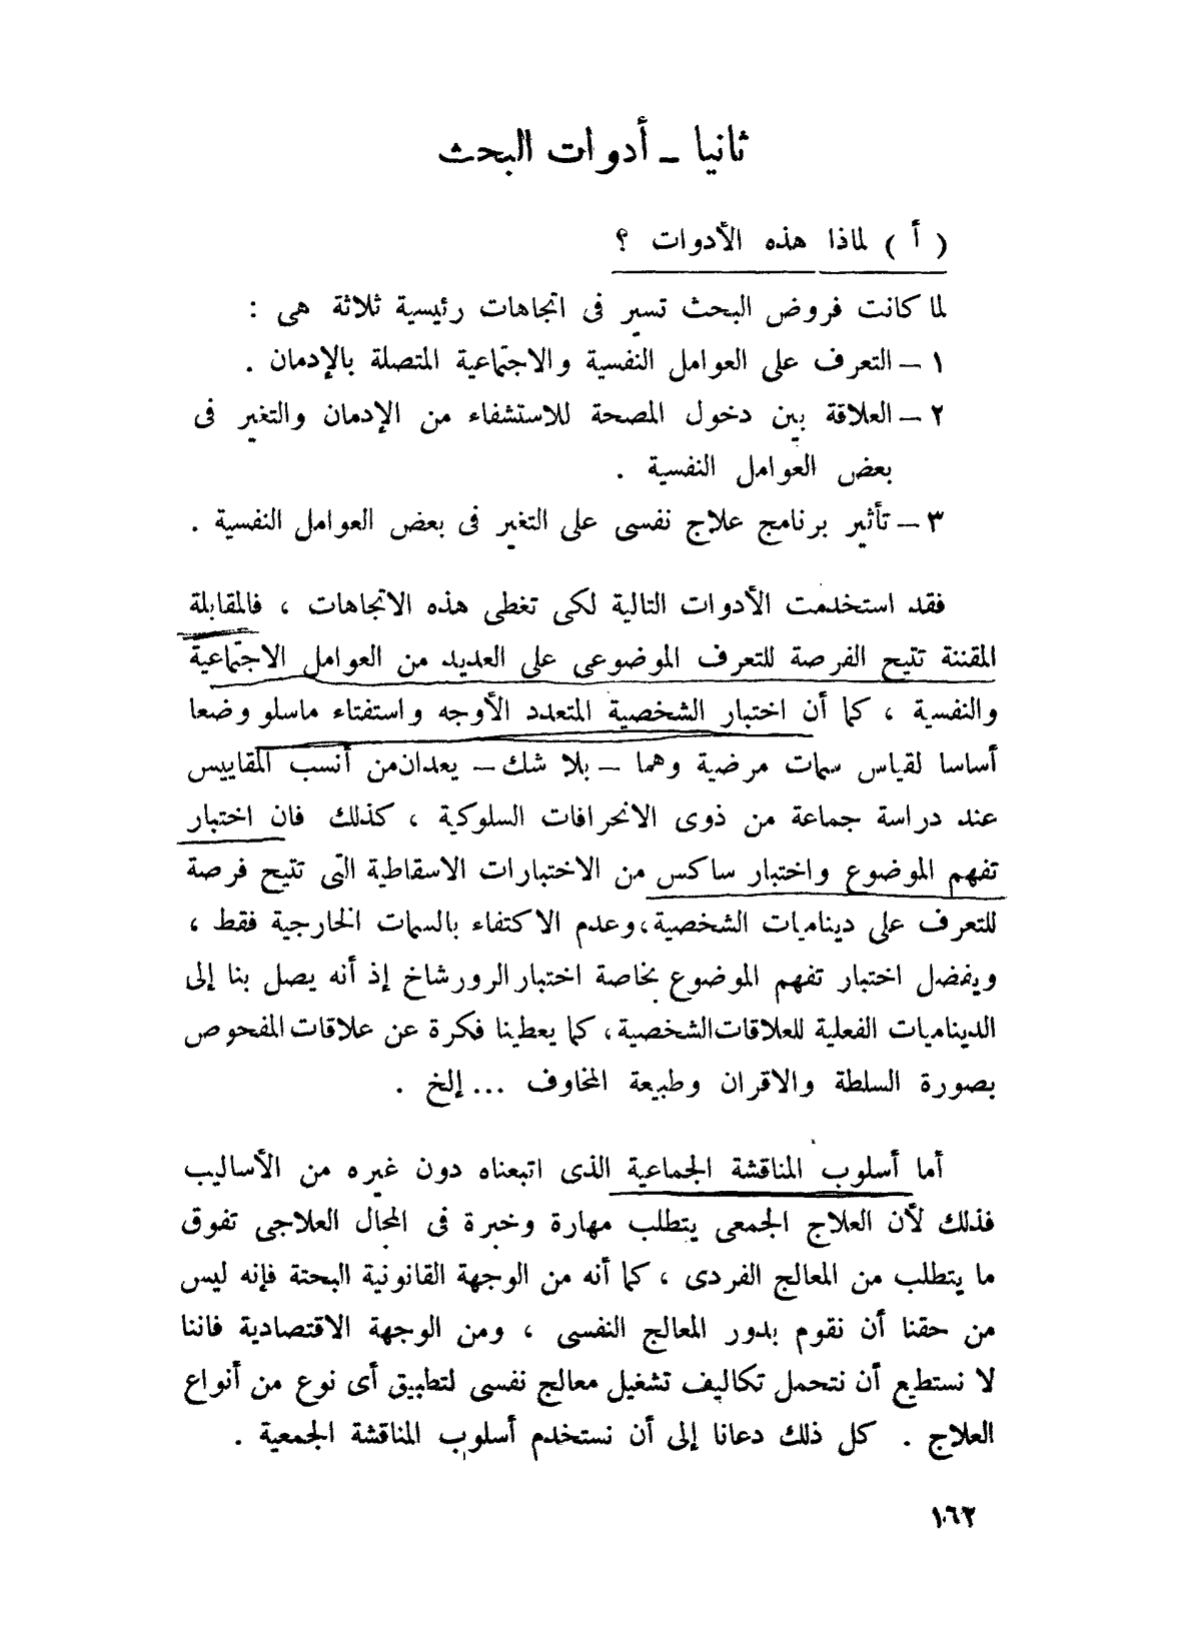 ثانيا ــ أدوات البحث
( أ ) لماذا هذه الأدوات ؟
لما كانت فروض البحث تسير فى اتجاهات رئيسية ثلاثة هى :
١ ــ التعرف على العوامل النفسية والاجتماعية المتصلة بالإدمان .
٢ ــ العلاقة بين دخول المصحة للاستشفاء من الإدمان والتغير فى
بعض العوامل النفسية .
٣ ــ تأثير برنامج علاج نفسى على التغير فى بعض العوامل النفسية .
فقد استخدمت الأدوات التالية لكى تغطى هذه الاتجاهات ، فالمقابلة
المقننة تتيح الفرصة للتعرف الموضوعى على العديد من العوامل الاجتماعية
والنفسية ، كما أن اختبار الشخصية المتعدد الأوجه واستفتاء ماسلو وضعا
أساسا لقياس سمات مرضية وهما ــ بلا شك ــ يعدان من أنسب المقاييس
عند دراسة جماعة من ذوى الانحرافات السلوكية ، كذلك فان اختبار
تفهم الموضوع واختبار ساكس من الاختبارات الاسقاطية التى تتيح فرصة
للتعرف على ديناميات الشخصية ، وعدم الاكتفاء بالسمات الخارجية فقط ،
ويفضل اختبار تفهم الموضوع بخاصة اختبار الرورشاخ إذ أنه يصل بنا إلى
الديناميات الفعلية للعلاقات الشخصية ، كما يعطينا فكرة عن علاقات المفحوص
بصورة السلطة والاقران وطبيعة المخاوف ... إلخ .
أما أسلوب المناقشة الجماعية الذى اتبعناه دون غيره من الأساليب
فذلك لأن العلاج الجمعى يتطلب مهارة وخبرة فى المجال العلاجى تفوق
ما يتطلب من المعالج الفردى ، كما أنه من الوجهة القانونية البحتة فإنه ليس
من حقنا أن نقوم بدور المعالج النفسى ، ومن الوجهة الاقتصادية فاننا
لا نستطيع أن نتحمل تكاليف تشغيل معالج نفسى لتطبيق أى نوع من أنواع
العلاج . كل ذلك دعانا إلى أن نستخدم أسلوب المناقشة الجمعية .
١٦٢